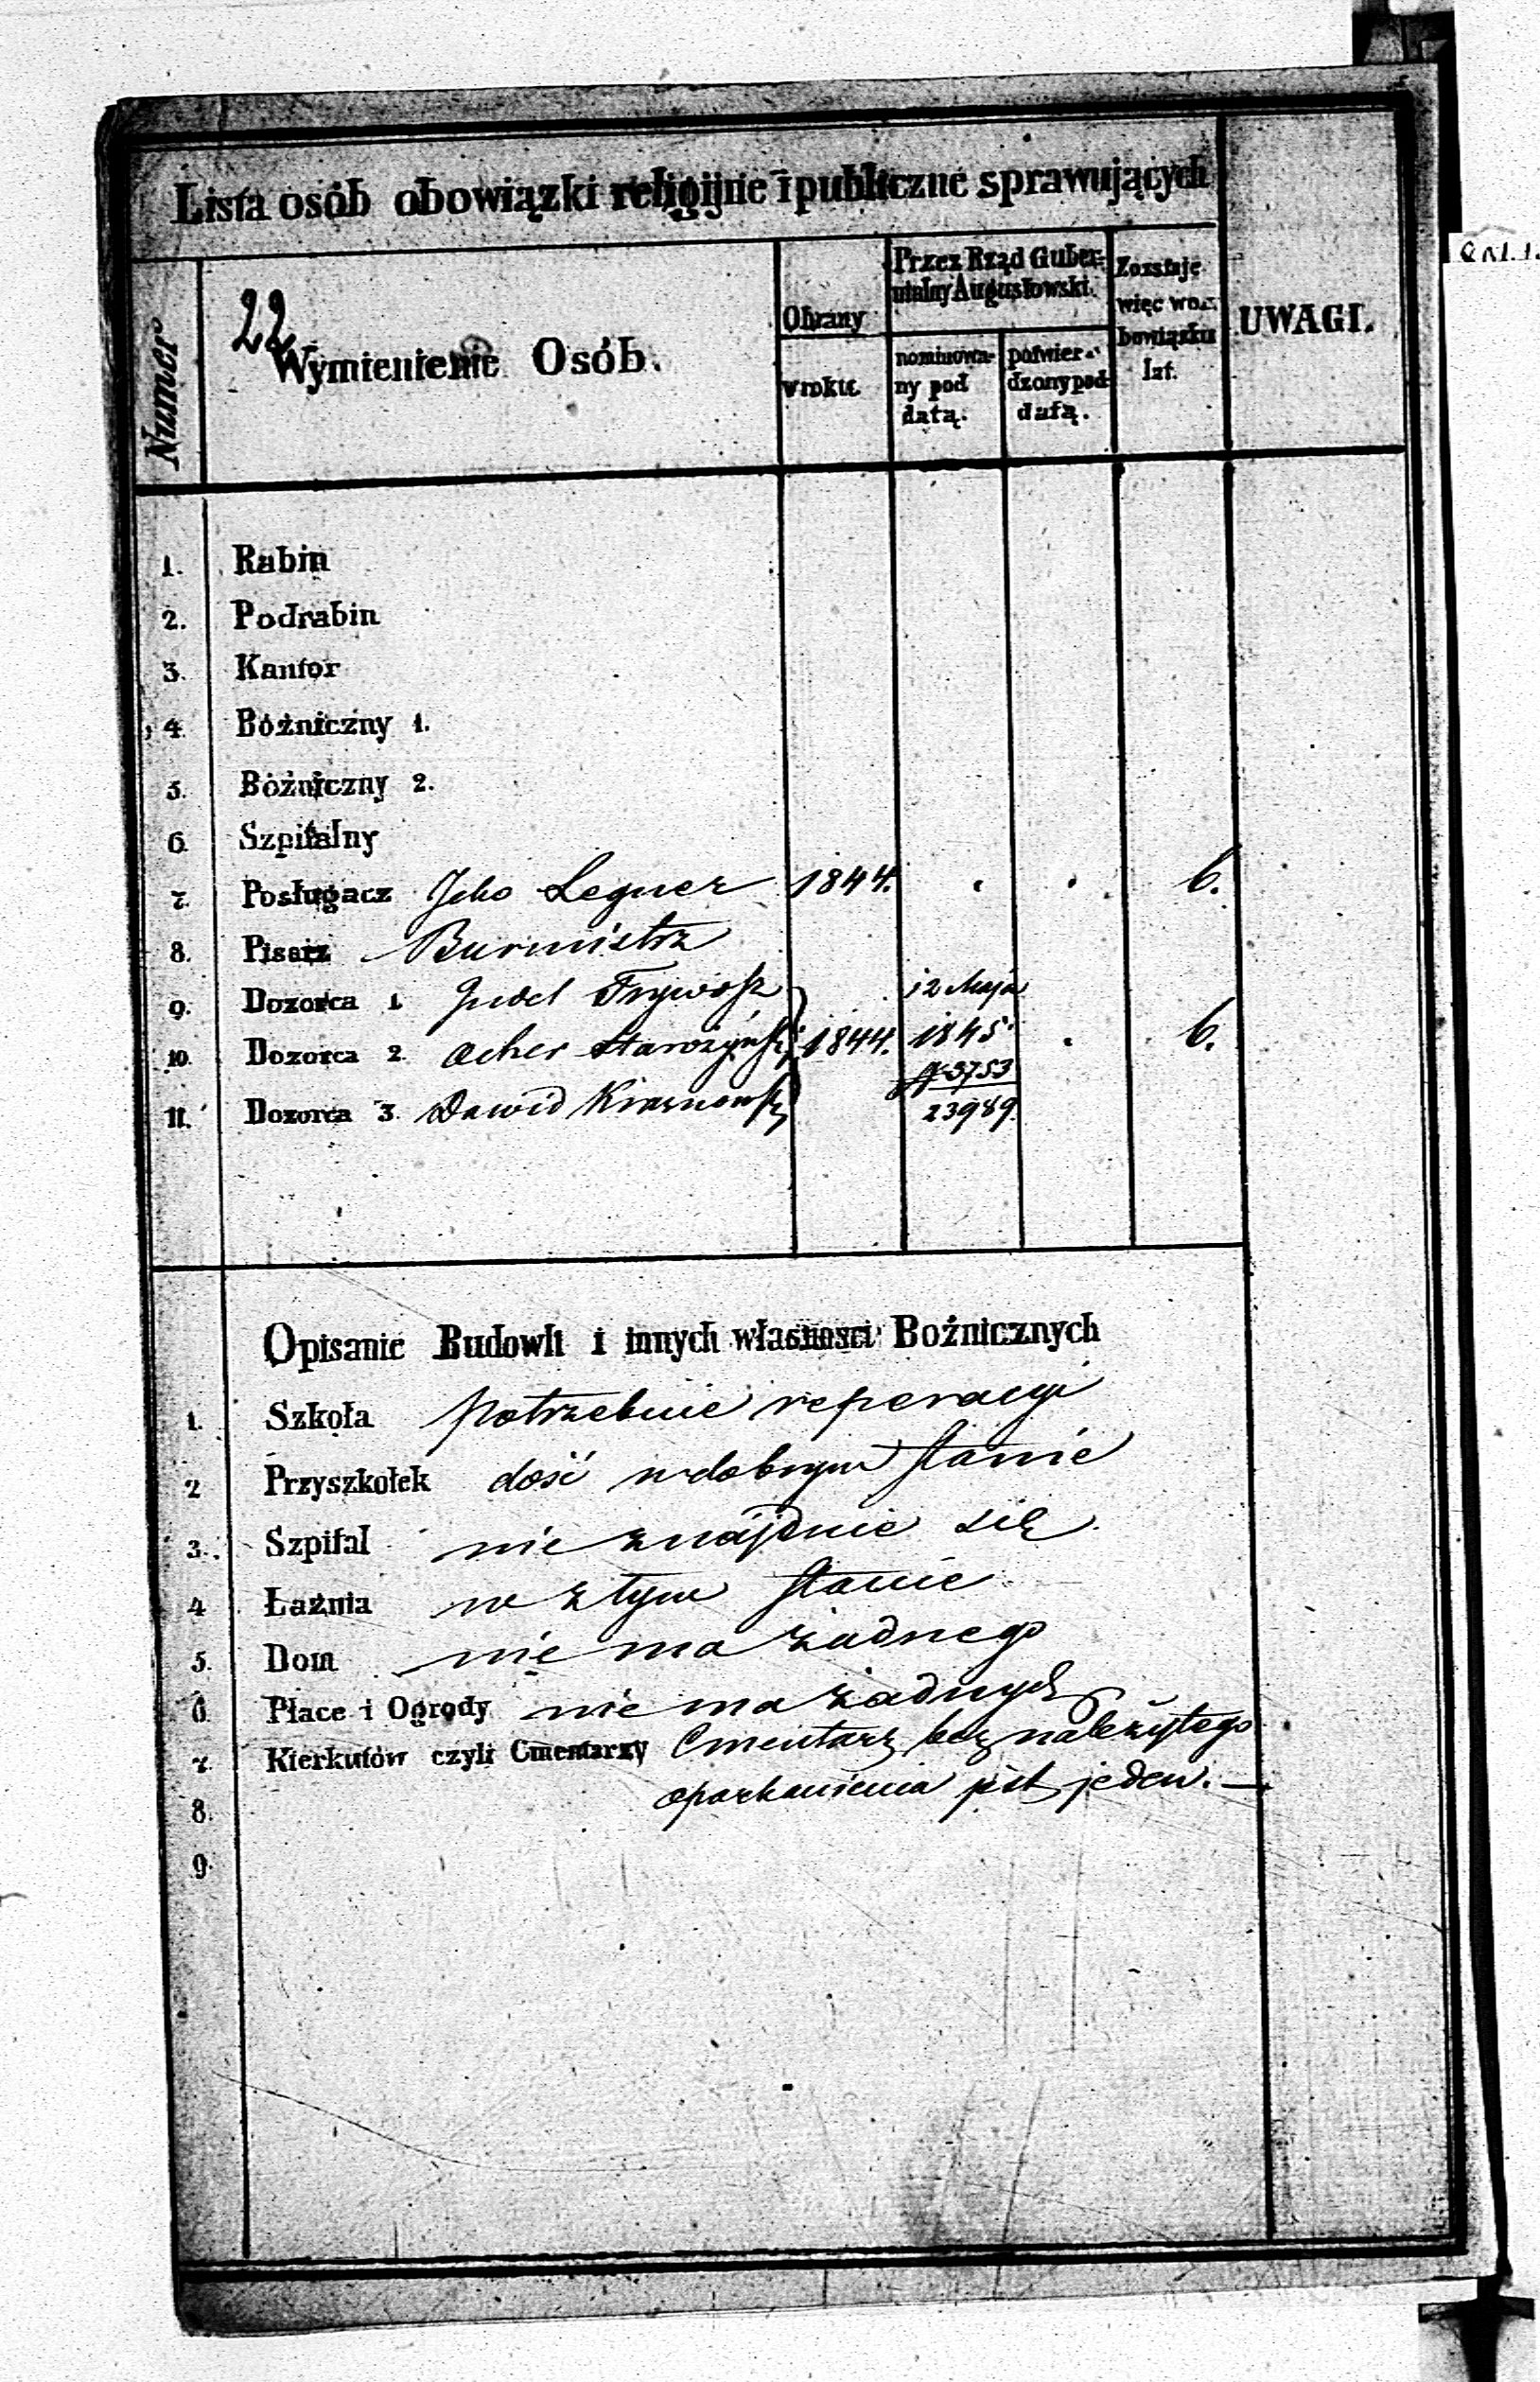 Lista osób obowiązki religijne i publiczne sprawujących
22
Numer
Wymienienie Osób.
Obrany
w rokie.
Przez Rząd Guber=
nialny Augustowski.
nominowa=
ny pod
datą.
potwier=
dzony pod
datą.
Zostaje
więc w o=
bowiązku
lat.
UWAGI.
1. Rabin
2. Podrabin
3. Kantor
4. Bóżniczny 1.
5. Bóżniczny 2.
6. Szpitalny
7. Posługacz Leguer 1844. 6.
8. Pisarz Burmistrz
9. Dozorca 1. Judel 12 Maja
10. Dozorca 2. 1844. 1845 6.
3753
11. Dozorca 3. Dawid 23989.
Opisanie Budowli i innych własności Bożnicznych
1. Szkoła potrzebuie reperacyi
2 Przyszkołek dość w dobrym stanie
3. Szpital nie znajduie się
4 Łaźnia w złym stanie
5. Dom nie ma żadnego
6. Place i Ogrody nie ma żadnych
7. Kierkutów czyli Cmentarzy Cmentarz bez należytego
oparkanienia jest jeden.
8.
9.